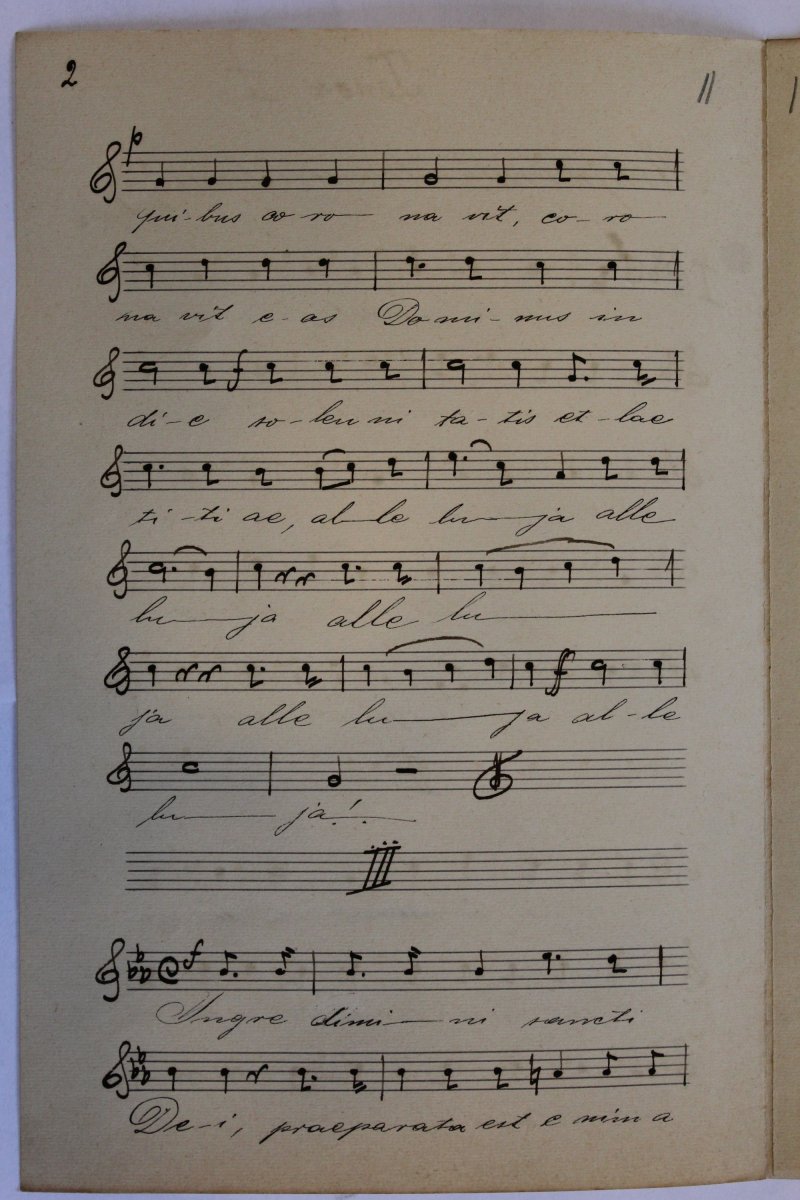 2
11
p
qui-bus co ro na vit, co-ro
na vit e-as Do mi-nus in
f
di-e so-lem ni ta-tis et-lae
ti-ti ae, al-le lu ja alle
lu ja alle lu
f
ja alle lu ja al-le
lu ja!
III
f
Ingre dimi ni sancti
De-i, praeparata est e nim a